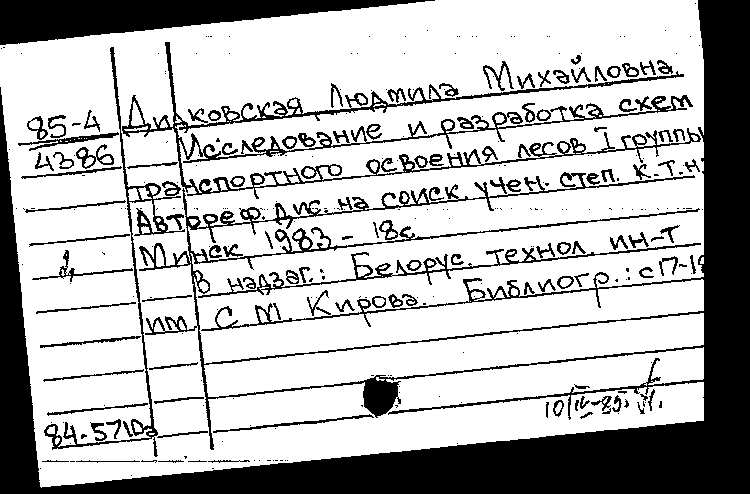 85-4 Дидковская Людмила Михайловна.
4386 Исследование и разработка схем
транспортного освоения лесов I группы
Автореф. дис. на соиск. учен. степ. к.т.н.
Минск, 1983 - 18с.
В надзаг.: Белорус. технол. ин-т
им С. М. Кирова. Библиогр.: с17-18
10/IV-85.
84-5710а